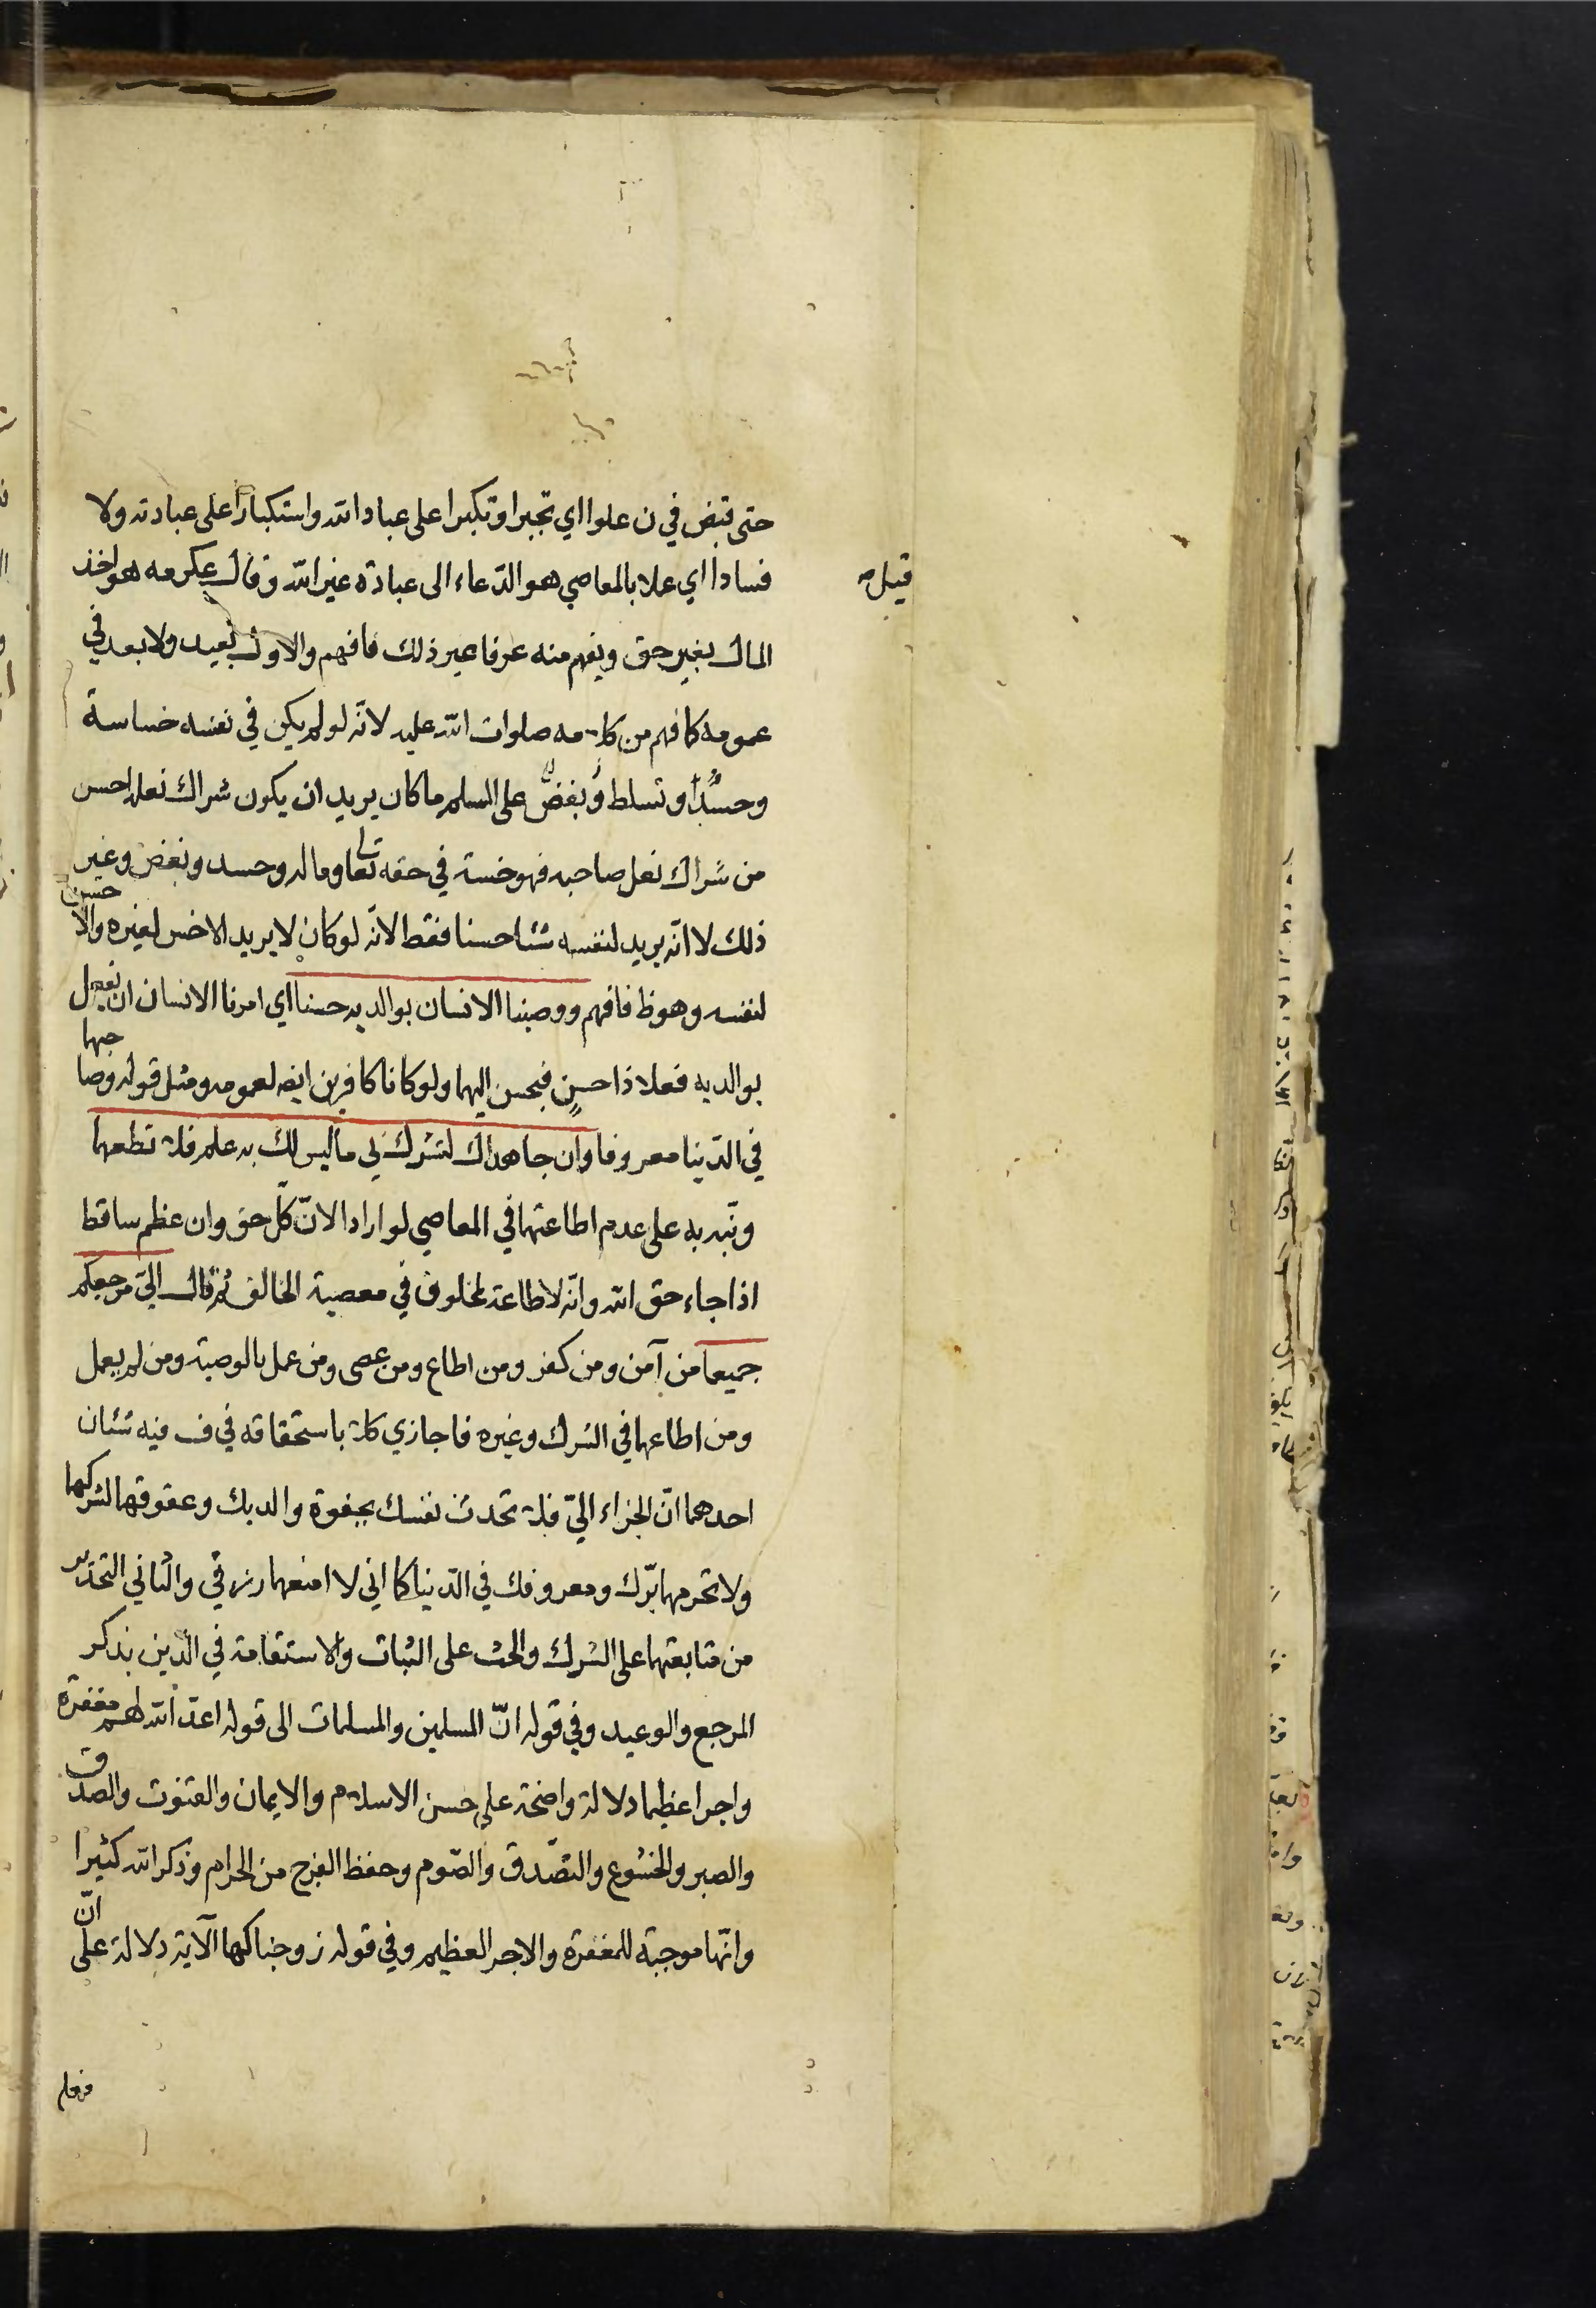 حتى قبض في ن علوا اي تجبرا وتكبرا على عباد الله واستكبارا على عبادته ولا
فسادا اي عملا بالمعاصي هو الدّعاء الى عبادة غير الله وقال عكرمه هو اخذ
قيل صه
المال بغير حق ويفهم منه عرفا غير ذلك فافهم والاول بعيد ولا بعد في
عمومه كما فهم من كلامه صلوات الله عليه لانّه لو لم يكن في نفسه خساسة
وحسدا وتسلط وبغض على المسلم ما كان يريد ان يكون شراك نعله احسن
من شراك نعل صاحبه فهو خسة في حقه تعا وماله وحسد وبغض وغير
ذلك لا انّه يريد لنفسه شئا حسنا فقط لانّه لو كان لا يريد الاخس لغيره والا حسن
لنفسه وهو ظ فافهم ووصينا الانسان بوالديه حسنا اي امرنا الانسان ان يفعل
بوالديه فعلا ذا حسن فيحسن اليهما ولو كانا كافرين ايضا لعمومه ومثل قوله وصاحبهما
في الدّنيا معروفا وان جاهداك لتشرك بي ما ليس لك به علم فلا تطعهما
ونبّه به على عدم اطاعتهما في المعاصي لو ارادا لانّ كلّ حق وان عظم ساقط
اذا جاء حق الله وانّه لا طاعة لمخلوق في معصية الخالق ثم قال اليّ مرجعكم
جميعا من آمن ومن كفر ومن اطاع ومن عصى ومن عمل بالوصية ومن لم يعمل
ومن اطاعهما في الشرك وغيره فاجازي كلا باستحقاقه في ف فيه شئان
احدهما انّ الجزاء اليّ فلا تحدث نفسك بجفوة والديك وعقوقهما لشركهما
ولا تحرمهما برّك ومعروفك في الدّنيا كما اني لا امنعهما رزقي والثاني التحذير
من متابعتهما على الشرك والحث على الثبات والاستقامة في الدّين بذكر
المرجع والوعيد وفي قوله انّ المسلمين والمسلمات الى قوله اعدّ الله لهم مغفرة
واجرا عظيما دلالة واضحة على حسن الاسلام والايمان والقنوت والصدق
والصبر والخشوع والتصّدق والصّوم وحفظ الفرج من الحرام وذكر الله كثيرا
وانّها موجبة للمغفرة والاجر العظيم وفي قوله زوجناكها الآية دلالة على انّ